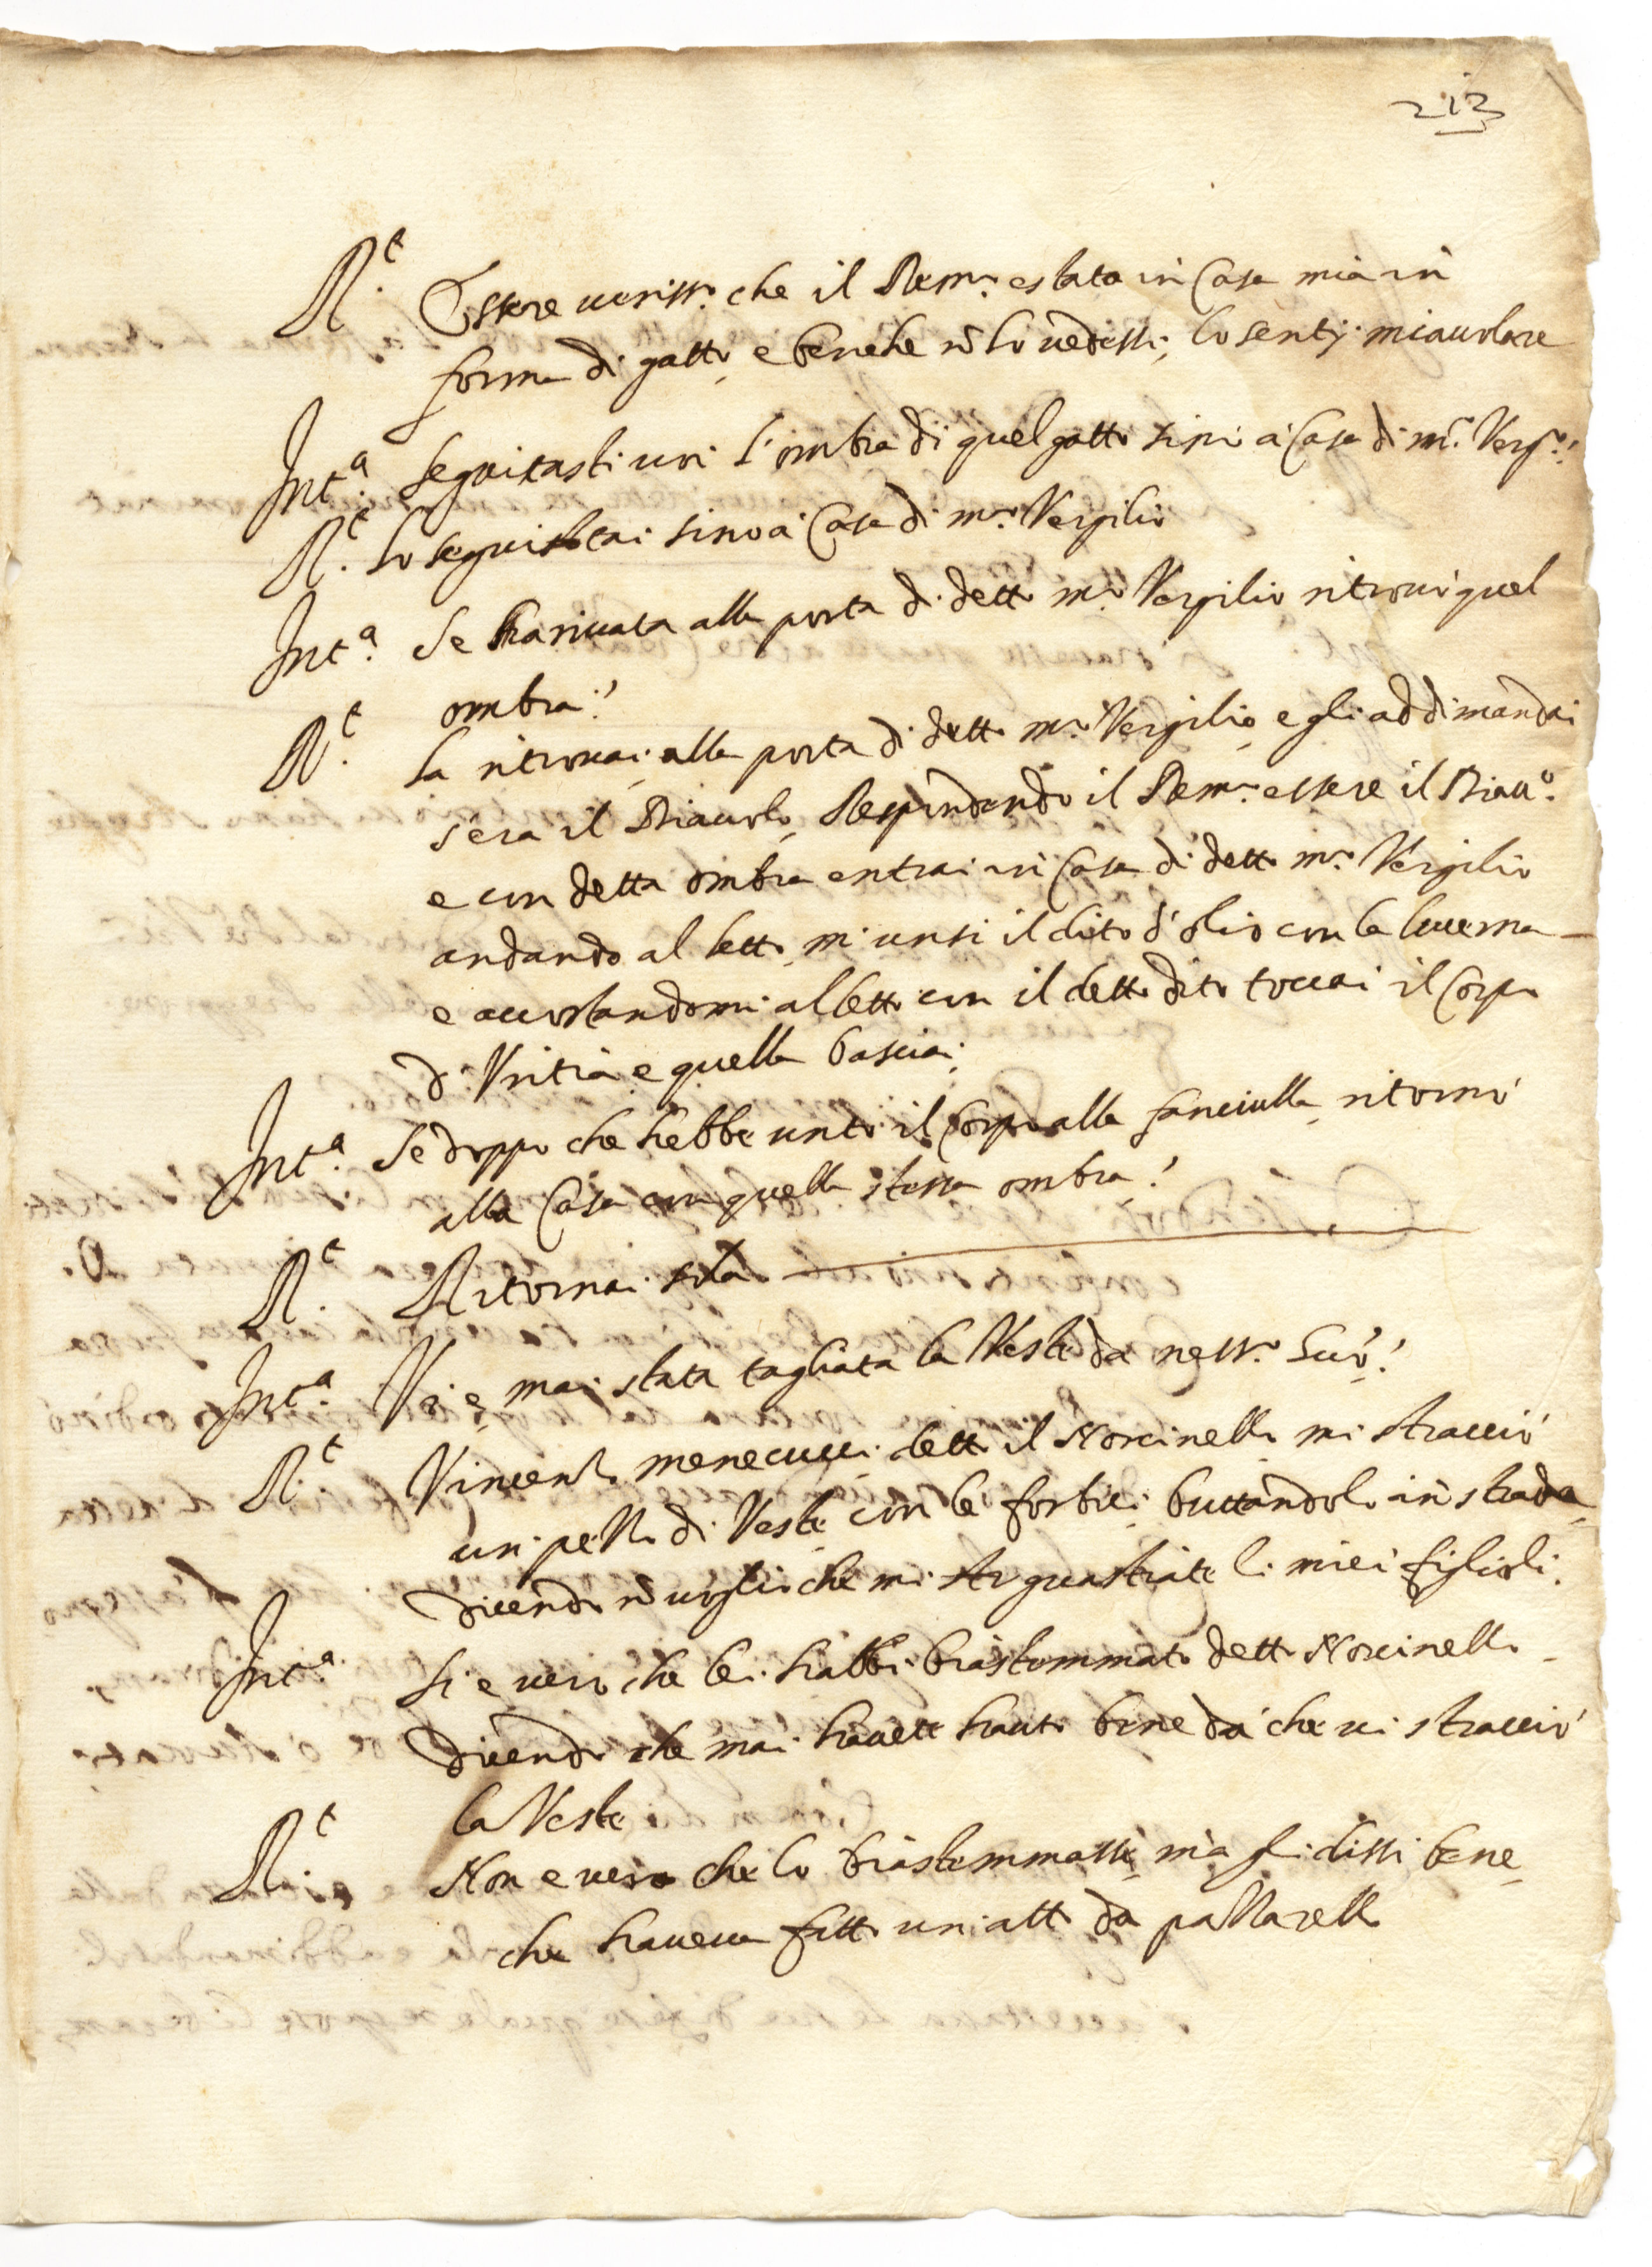 213
R.t Essere veriss.o che il Dem.o e stato in Casa mia in
forma di gatto, e benche nõ lo vedessi, lo sentij miaulare
Int.a Seguitasti voi l'ombra di quel gatto sino à Casa di m.r Verg.o?
R.t Lo seguitai sino à Casa di m.r Vergilio
Int.a Se harivata alla porta di detto m.r Vergilio ritrovò quel
ombra?
R.t La ritrovai alla porta di detto m.r Vergilio, e gli addimandai
s'era il Diavolo, Respondendo il Dem.o essere il Diav.o
e con detta ombra entrai in Casa di detto m.r Vergilio
andando al letto, mi unsi il dito d'olio con la lucerna
e accostandomi al letto con il detto dito toccai il Corpo
di Vritia e quella basciai
Int.a Se doppo che hebbe unto il Corpo alla fanciulla, ritornò
alla Casa con quella stessa ombra?
R.t Ritornai sola
Int.a Vi è mai stata tagliata la Veste da ness.o Suo?
R.t Vincenzo menecucci detto il Norcinello mi stracciò
un pezzo di Veste con le forbici buttandolo in strada
dicendo nõ voglio che mi guastiate li miei figlioli
Int.a Si e vero che lei habbi biastemmato detto Norcinello
dicendo che mai havete hauto bene da che vi stracciò
la Veste
R.t Non e vero che lo biastemmassi, mà gli dissi bene
che haveva fatto un atto da pazzarello